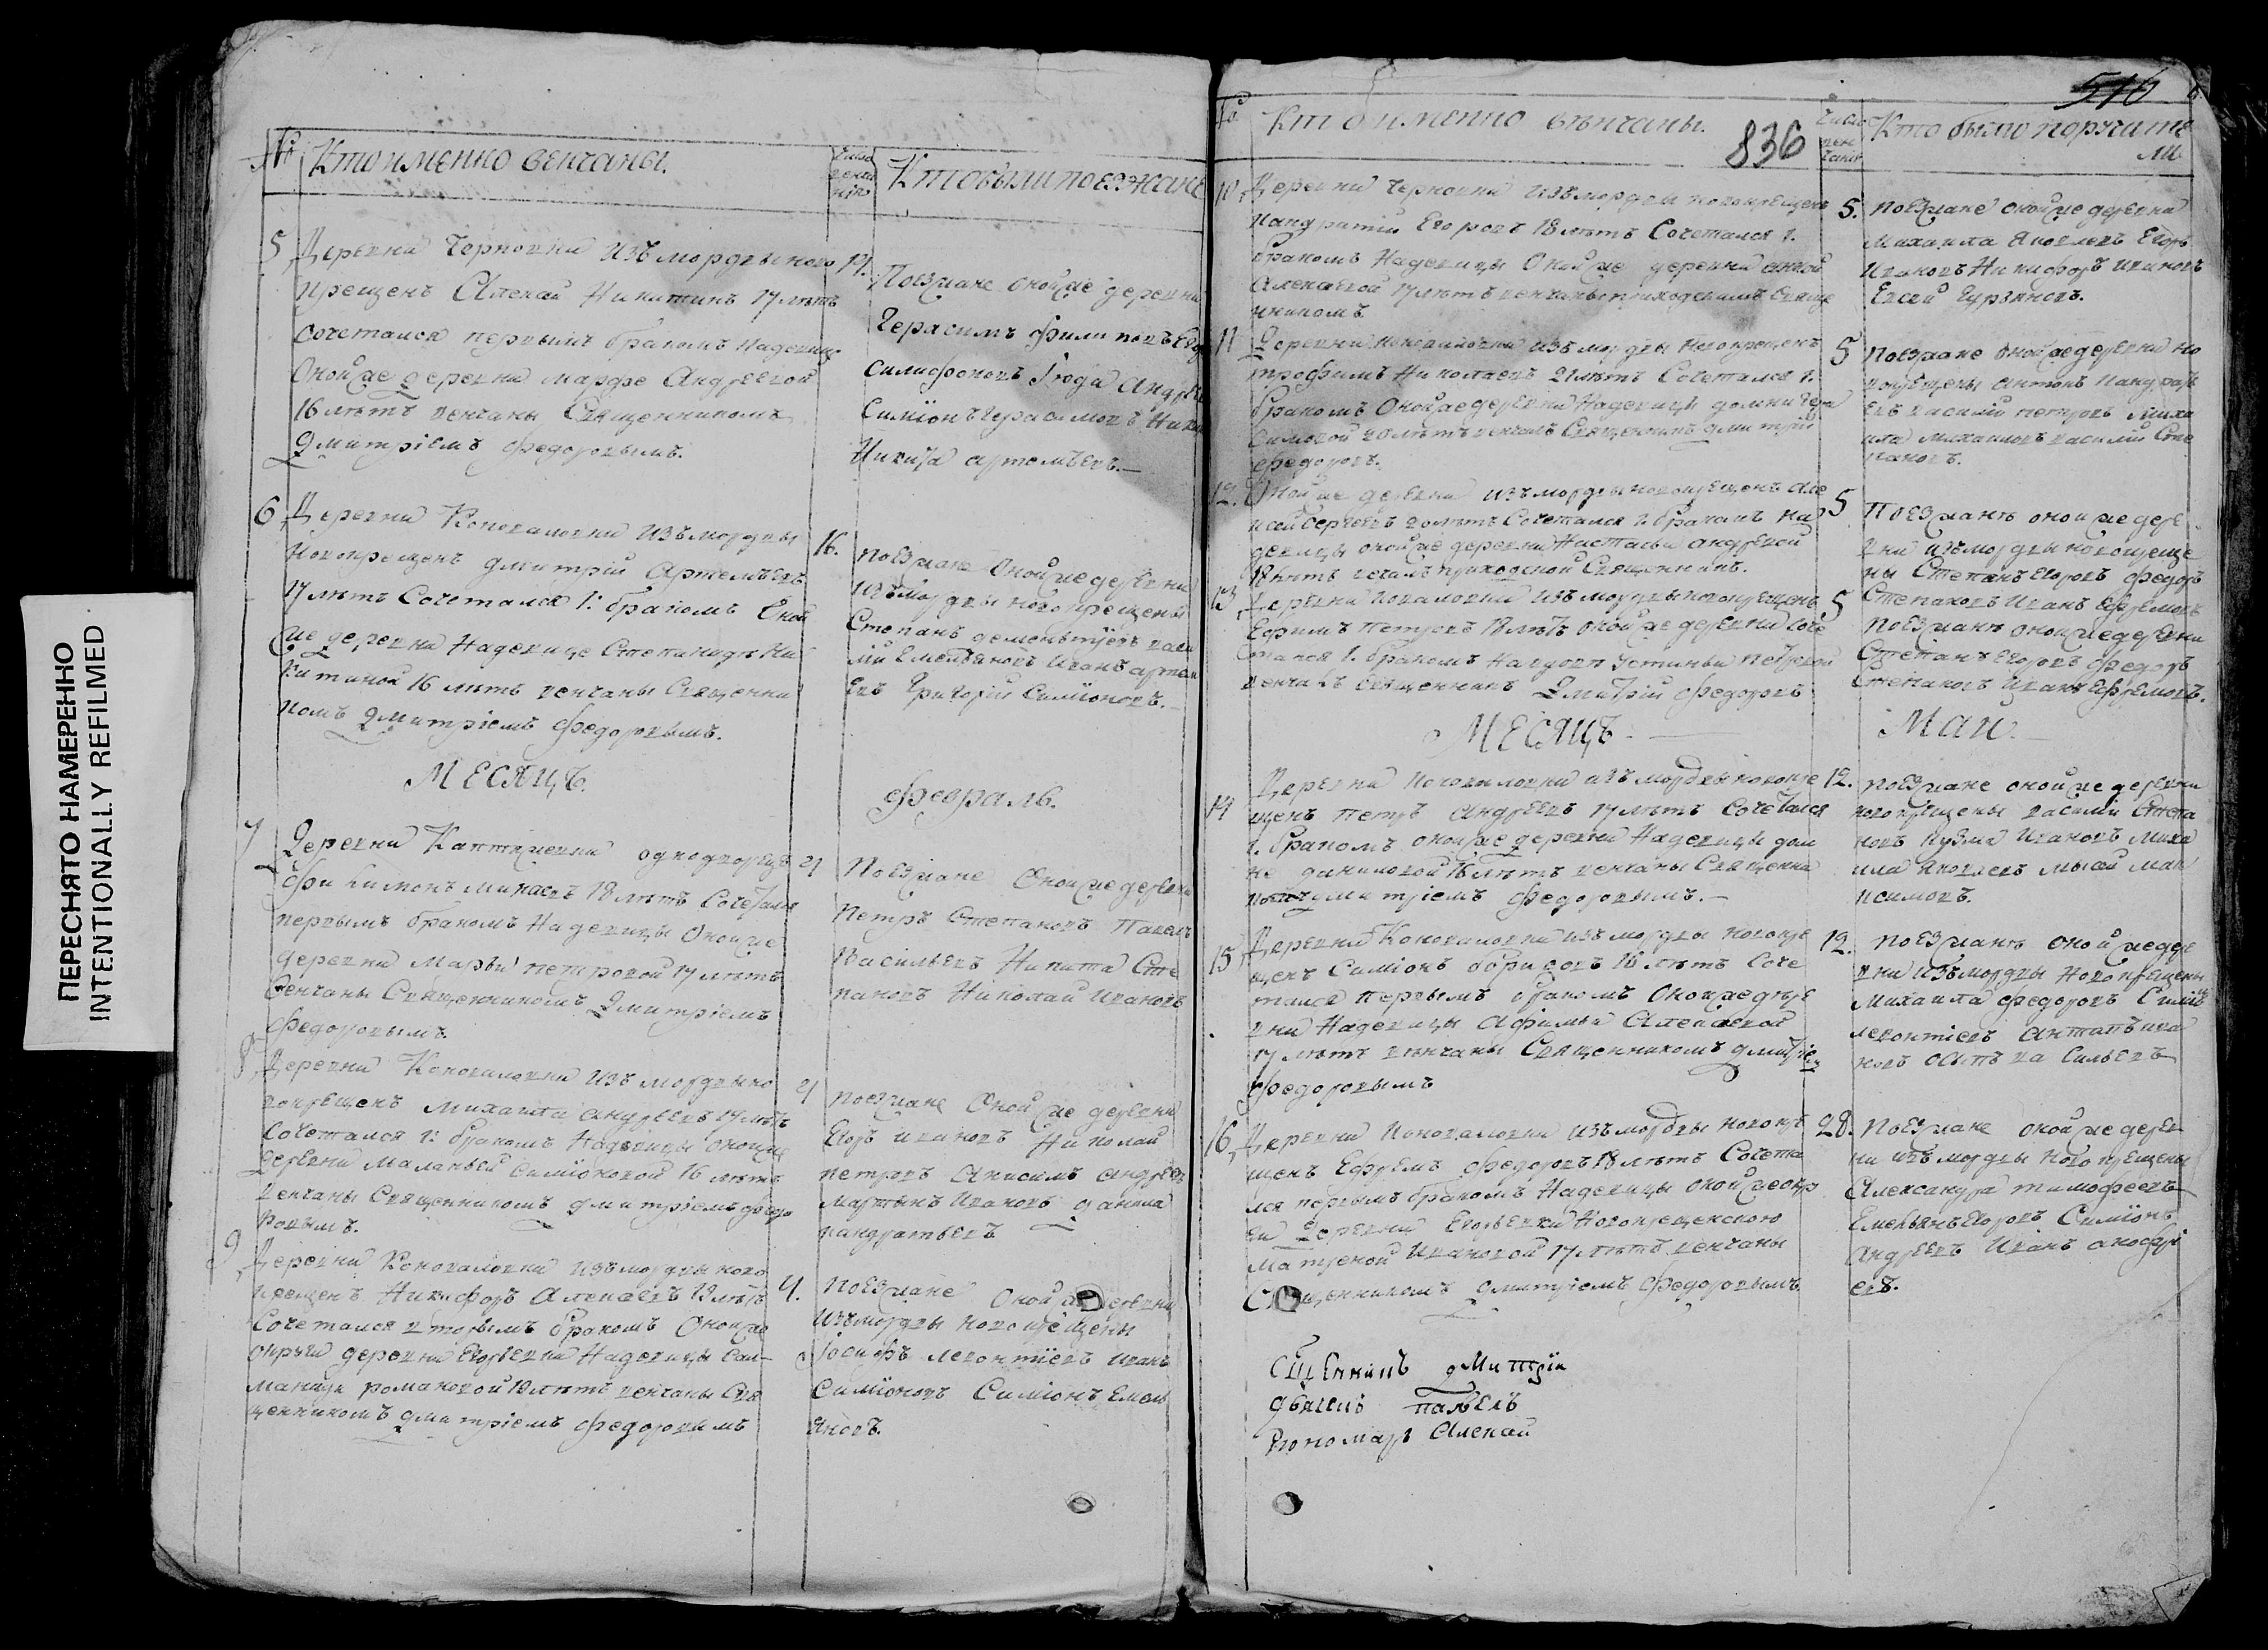 ПЕРЕСНЯТО НАМЕРЕННО
INTENTIONALLY REFILMED
№
Кто именно венчаны.
Кто были поезжане
5
Деревни Черновки изъ мордвы ново
крещенъ Алексай Никитинъ 17 лѣтъ
сочетался первымъ бракомъ на девице
Оной же деревни марфе Андреевой
16 лѣтъ венчаны Священникомъ
Дмитріемъ Федоровымъ.
Поезжане оной же деревни
Герасимъ Филиповъ
Июда
Симіонъ Герасимовъ
Никита артемьевъ.
6
Деревни Коноваловки изъ мордвы
Новокрещенъ дмитрій Артемьевъ
17 лѣтъ Сочетался 1: бракомъ Оной
же деревни На девице Степаниде Ни
китиной 16 лѣтъ венчаны Священни
комъ Дмитріемъ Федоровымъ.
16.
Поезжане Оной же деревни
изъ мордвы новокрещены
Степанъ дементіевъ васи
лій Емельяновъ Иванъ артемь
евъ Григорій Симіоновъ.
МЕСЯЦЪ
Февраль.
7
Деревни однодворецъ
18 лѣтъ Сочетался
первымъ бракомъ На девицы Оной же
деревни Марьи петровой 17 лѣтъ
Венчаны Священникомъ Дмитріемъ
Федоровымъ.
4
Поезжане Оной же деревни
Петръ Степановъ Павелъ
Васильевъ Никита Сте
пановъ Николай Ивановъ
8
Деревни Коноваловки изъ мордвы но
вокрещенъ Михаила андреевъ 17 лѣтъ
Сочетался 1: бракомъ На девицы оной же
деревни Маланьей Симіоновой 16 лѣтъ
Венчаны Священникомъ дмитріемъ федо
ровымъ.
4
Поезжане Оной же деревни
Егоръ ивановъ Николай
петровъ Анисимъ андреевъ
мартынъ Ивановъ данила
кандратьевъ
9
Деревни Коноваловки изъ мордвы ново
крещенъ Никифоръ Алексаевъ 18 лѣтъ
Сочетался вторымъ бракомъ Оной же
округи деревни Егорьевки На девицы Сал-
маниды романовой 18 лѣтъ венчаны Свя
щенникомъ дмитріемъ Федоровымъ
4.
Поезжане Оной же деревни
изъ мордвы новокрещены
Іосифъ левонтіевъ Иванъ
Симіоновъ Симіонъ Емель
яновъ.
516
836
Кто именно венчаны.
Кто были поручите
ли
10
Деревни Черновки изъ мордвы новокрещенъ
Кандратій Егоровъ 18 лѣтъ Сочетался 1.
бракомъ На девицы Оной же деревни анной
Алексаевой 17 лѣтъ венчаны приходскимъ Свяще
нникомъ
5.
поезжане оной же деревни
Михаила Яковлевъ Егоръ
Ивановъ Никифоръ ивановъ
Евсей Гурьяновъ.
11
Деревни Коноваловки изъ мордвы новокрещенъ
трофимъ Николаевъ 21 лѣтъ Сочетался 1.
бракомъ Оной же деревни На девицы домни Гера
симовой 20 лѣтъ венчалъ Священникъ дмитрій
федоровъ.
5
поезжане оной же деревни но
вокрещены антонъ Кандрать
евъ василій петровъ Миха
ила михаиловъ василій Сте
пановъ.
12.
Оной же деревни изъ мордвы новокрещенъ Але
ксей Сергеевъ 20 лѣтъ Сочетался 1. бракомъ на
девицы оной же деревни Настасьи андреевой
18 лѣтъ венчалъ приходской Священникъ.
5
Поезжанѣ оной же дере
вни изъ мордвы новокреще
ны Степанъ Егоровъ федоръ
Степановъ Иванъ Ефремовъ
13
Деревни Коноваловки изъ мордвы новокрещенъ
Ефимъ петровъ 18 лѣтъ оной же деревни Соче
тался 1. бракомъ На вдовѣ Устиньи петровой
венчалъ Священникъ Дмитрій Федоровъ
5
Поезжанѣ оной же деревни
Степанъ Егоровъ федоръ
Степановъ Иванъ Ефремовъ.
МЕСЯЦЪ
Маи
14
Деревни Коноваловки изъ мордвы новокре
щенъ петръ Андреевъ 17 лѣтъ Сочетался
1. бракомъ оной же деревни На девицы дом
не даниловой 18 лѣтъ венчаны Священни
комъ дмитріемъ Федоровымъ.
12.
поезжане оной же деревни
новокрещены василій Степа
новъ кузма ивановъ Миха
ила яковлевъ мысай мак
симовъ.
15
Деревни Коноваловки изъ мордвы новокре
щенъ Симіонъ борисовъ 16 лѣтъ Соче
тался первымъ бракомъ Оной же дере
вни На девицы Афимьи Алексаевой
17 лѣтъ венчаны Священникомъ дмитріемъ
Федоровымъ
12.
поезжанѣ оной же дере
вни изъ мордвы новокрещены
Михаила федоровъ Симіонъ
левонтіевъ антипъ ива
новъ осипъ васильевъ
16
Деревни Коноваловки изъ мордвы новокре
щенъ Ефремъ федоровъ 18 лѣтъ Сочета
лся первымъ бракомъ На девицы оной же окру
ги деревни Егорьевки Новокрещенскою
матреной Ивановой 17 лѣтъ венчаны
Священникомъ дмитріемъ Федоровымъ
28.
поезжане оной же дерев
ни изъ мордвы новокрещены
Александра тимофеевъ
Емельянъ Егоровъ Симіонъ
андреевъ Иванъ анофрі
евъ.
Сщенникъ дмитрій
дьячекъ павелъ
Пономарь Алексай